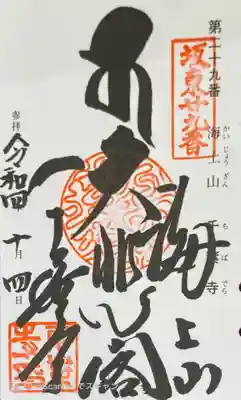 第二十九番 海上山 千葉寺
かい じょう ざん ち ば でら
坂東廿九番
海上山
大悲閣
千葉寺
参拝 令和四 十月四日